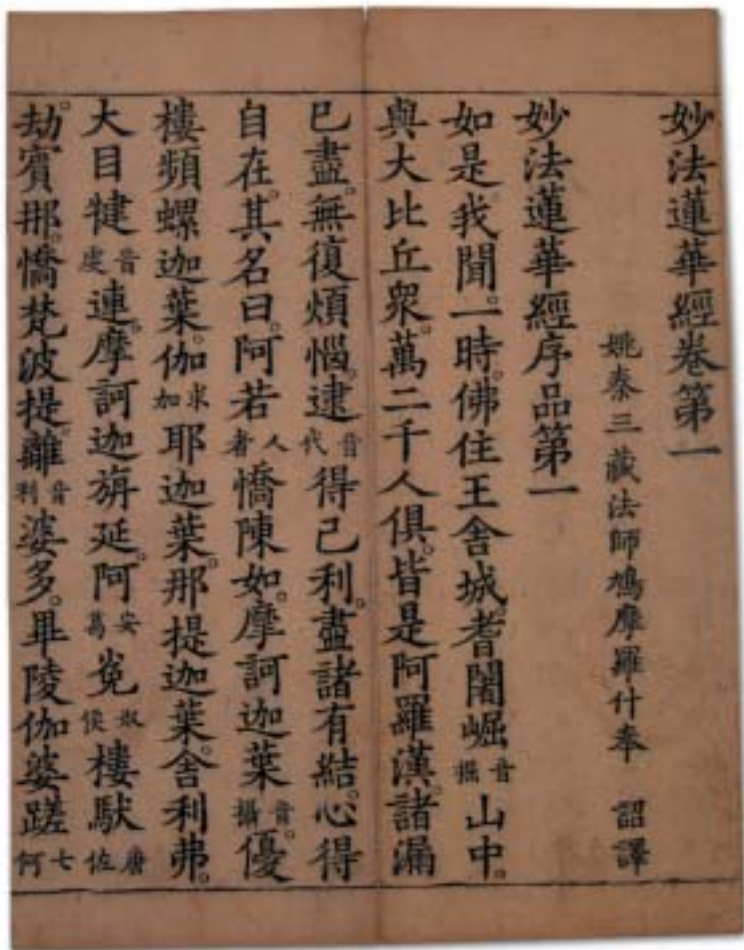 妙法蓮華經卷第一
姚秦三藏法師鳩摩羅什奉 詔譯
妙法蓮華經序品第一
如是我聞。一時。佛住王舍城。耆闍崛音掘山中。
與大比丘衆。萬二千人俱。皆是阿羅漢。諸漏
已盡。無復煩惱。逮音代得己利。盡諸有結。心得
自在。其名曰。阿若人者憍陳如。摩訶迦葉音攝。優
樓頻螺迦葉。伽求加耶迦葉。那提迦葉。舍利弗。
大目犍音虔連。摩訶迦旃延。阿安葛㝹奴侯樓馱唐佐
。劫賓那。憍梵波提。離音利婆多。畢陵伽婆蹉七何